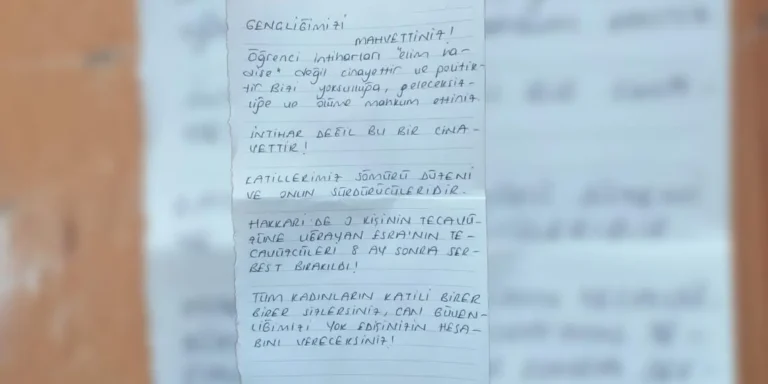 GENÇLİĞİMİZİ
MAHVETTİNİZ!
Öğrenci intiharları "elim ha-
dise" değil cinayettir ve politik-
tir Bizi yoksulluğa, geleceksiz-
liğe ve ölüme mahkum ettiniz.
İNTİHAR DEĞİL BU BİR CİNA-
YETTİR!
KATİLLERİMİZ SÖMÜRÜ DÜZENİ
VE ONUN SÜRDÜRÜCÜLERİDİR.
HAKKARİ'DE 2 KİŞİNİN TECAVÜ-
ZÜNE UĞRAYAN ESRA'NIN TE-
CAVÜZCÜLERİ 8 AY SONRA SER-
BEST BIRAKILDI!
TÜM KADINLARIN KATİLİ BİRER
BİRER SİZLERSİNİZ, CAN GÜVEN-
LİĞİMİZİ YOK EDİŞİNİZİN HESA-
BINI VERECEKSİNİZ!